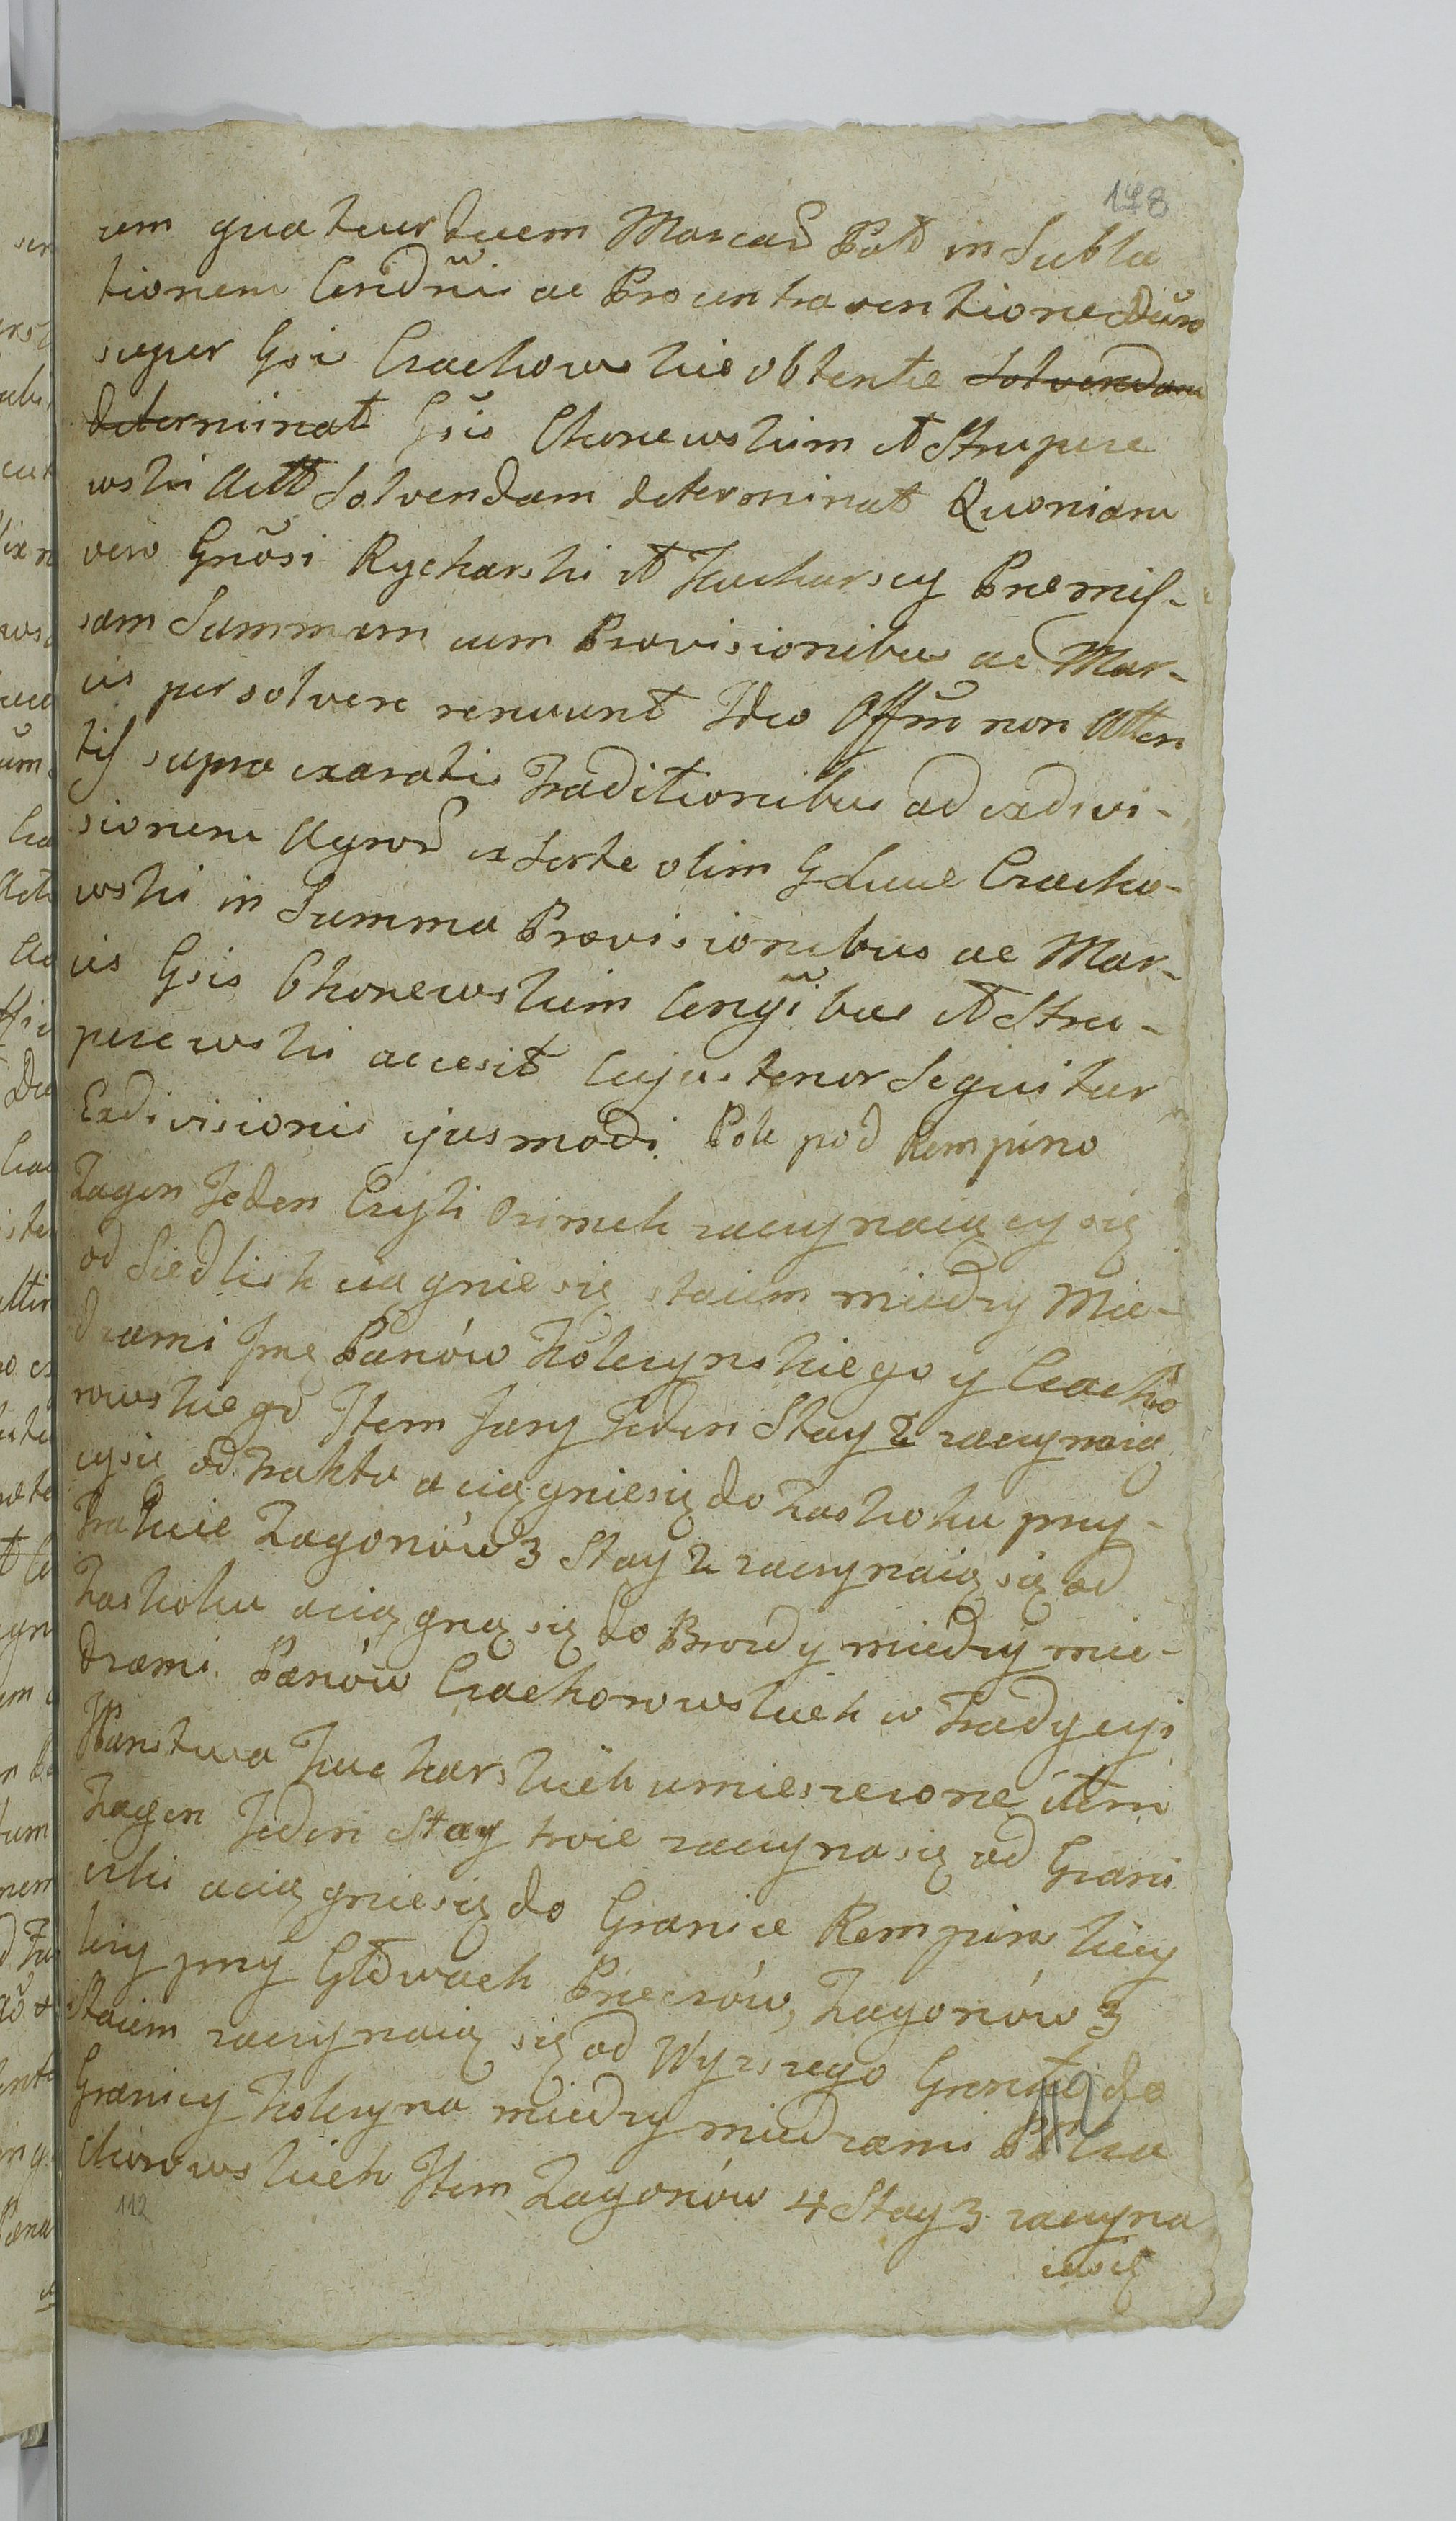 178
um quatuordecem Marcarũ Pol̃ in Subla
tionem Condñis ac Pro contraventione Dũro
super Gsi Czachowskie obtente Solvendam
determinat Gsis Chonewskim et Strupcze
wski Actt Solvendam determinat Quoniam
vero Gnõsi Rycharski et Kucharscy Præmis-
sam Summam cum Provisionibus ac Mar-
cis persolvere renuunt Ideo Offm̃ non Atten
tis supra exaratis Traditionibus ad exdivi-
sionem Agrorũ ex Sorte olim G Lucæ Czacho-
wski in Summa Provisionibus ac Mar-
cis Gsis Chonewskim Congĩbus et Stru-
pczewski accesit Cujus tenor Sequitur
Exdivisionis ejusmodi. Pole pod Rempino
Zagon Jeden Czyli Ozimek zaczynaiący się
od Siedlisk ciągnie się staiem miedzy Mie-
dzami Jmc Panów Kolczynskiego y Czacho
rowskiego Item Jary Jeden Stay 2 zaczynaią
cy się od traktu a ciągnie się do Zaskoku przy-
Trakcie Zagonów 3 Stay 2 zaczynaią się od
Zaskoku a ciągną się do Brozdy miedzy mie-
dzami. Panów Czachorowskich w Tradycyi
Państwa Kucharskich umieszczone item
Zagon Jeden Stay troie zaczyna się od Grani
czki a ciągnie się do Granice Rempinskiey
przy Głowach Przeczów, Zagonów 3
Staiem zaczynaią się od Wyzszego Gruntu do
Granicy Kolczyna miedzy miedzami PP Cza
chorowskich Item Zagonów 4 Stay 3 zaczyna
ią się
112
112